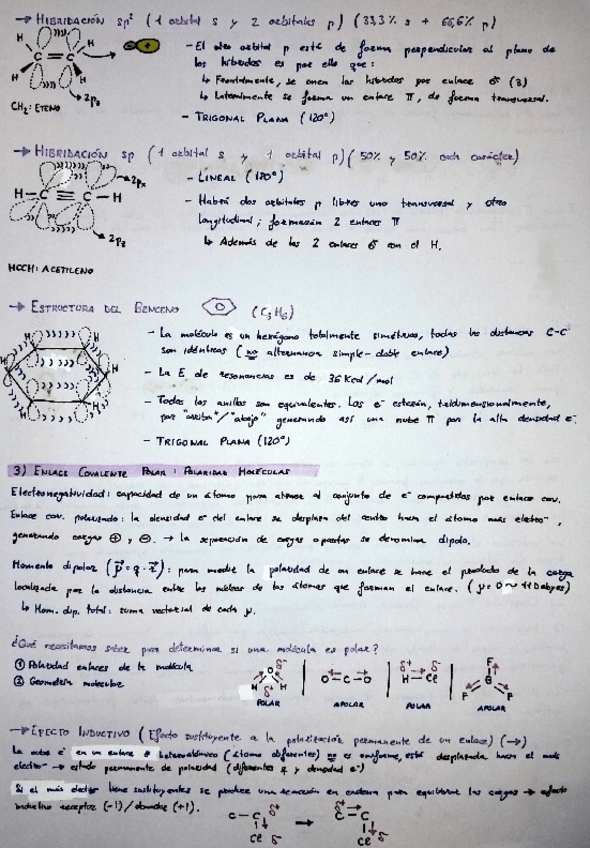 → HIBRIDACIÓN sp² (1 orbital s y 2 orbitales p) (33,3% s + 66,6% p)
- El otro orbital p está de forma perpendicular al plano de
los híbridos es por ello que:
↳ Frontalmente, se unen los híbridos por enlace σ (3)
↳ Lateralmente se forma un enlace π, de forma transversal.
- TRIGONAL PLANA (120°)
H H
C=C
H H
2pz
CH2: ETENO
→ HIBRIDACIÓN sp (1 orbital s y 1 orbital p) (50% y 50% cada carácter)
2px
H-C≡C-H
2pz
- LINEAL (180°)
- Habrá dos orbitales p libres uno transversal y otro
longitudinal; formarán 2 enlaces π
↳ Además de los 2 enlaces σ con el H.
HCCH: ACETILENO
→ ESTRUCTURA DEL BENCENO (C5H6)
- La molécula es un hexágono totalmente simétrico, todas las distancias C-C
son idénticas (no alternancia simple-doble enlace)
- La E. de resonancias es de 36 Kcal/mol
- Todos los anillos son equivalentes. Los e⁻ estarán, tridimensionalmente,
por "arriba"/"abajo" generando así una nube π por la alta densidad e⁻.
- TRIGONAL PLANA (120°)
H H
H H
H H
3) ENLACE COVALENTE POLAR: POLARIDAD MOLÉCULAS
Electronegatividad: capacidad de un átomo para atraer al conjunto de e⁻ compartidos por enlace cov.
Enlace cov. polarizado: la densidad e⁻ del enlace se desplaza del centro hacia el átomo más electro⁻,
generando cargas ⊕ y ⊖. → la separación de cargas opuestas se denomina dipolo.
Momento dipolar (μ = q · r): para medir la polaridad de un enlace se hace el producto de la carga
localizada por la distancia entre los núcleos de los átomos que forman el enlace. (μ = 0 ~ 11 Debyes)
↳ Mom. dip. total: suma vectorial de cada μ.
¿Qué necesitamos saber para determinar si una molécula es polar?
① Polaridad enlaces de la molécula
② Geometría molecular
δ⁻
O
H H
δ⁺
POLAR
O=C=O
APOLAR
δ⁺ δ⁻
H-Cl
POLAR
F
B
F F
APOLAR
→ EFECTO INDUCTIVO (Efecto sustituyente a la polarización permanente de un enlace) (→)
La nube e⁻ en un enlace σ heteroatómico (átomo diferentes) no es uniforme, está desplazada hacia el más
electro⁻ → estado permanente de polaridad (diferentes q y densidad e⁻)
Si el más electro⁻ tiene sustituyentes se produce una reacción en cadena para equilibrar las cargas → efecto
inductivo aceptor (-I) / donador (+I).
C-C δ⁺
Cl δ⁻
→
δ⁺ C-C
Cl δ⁻